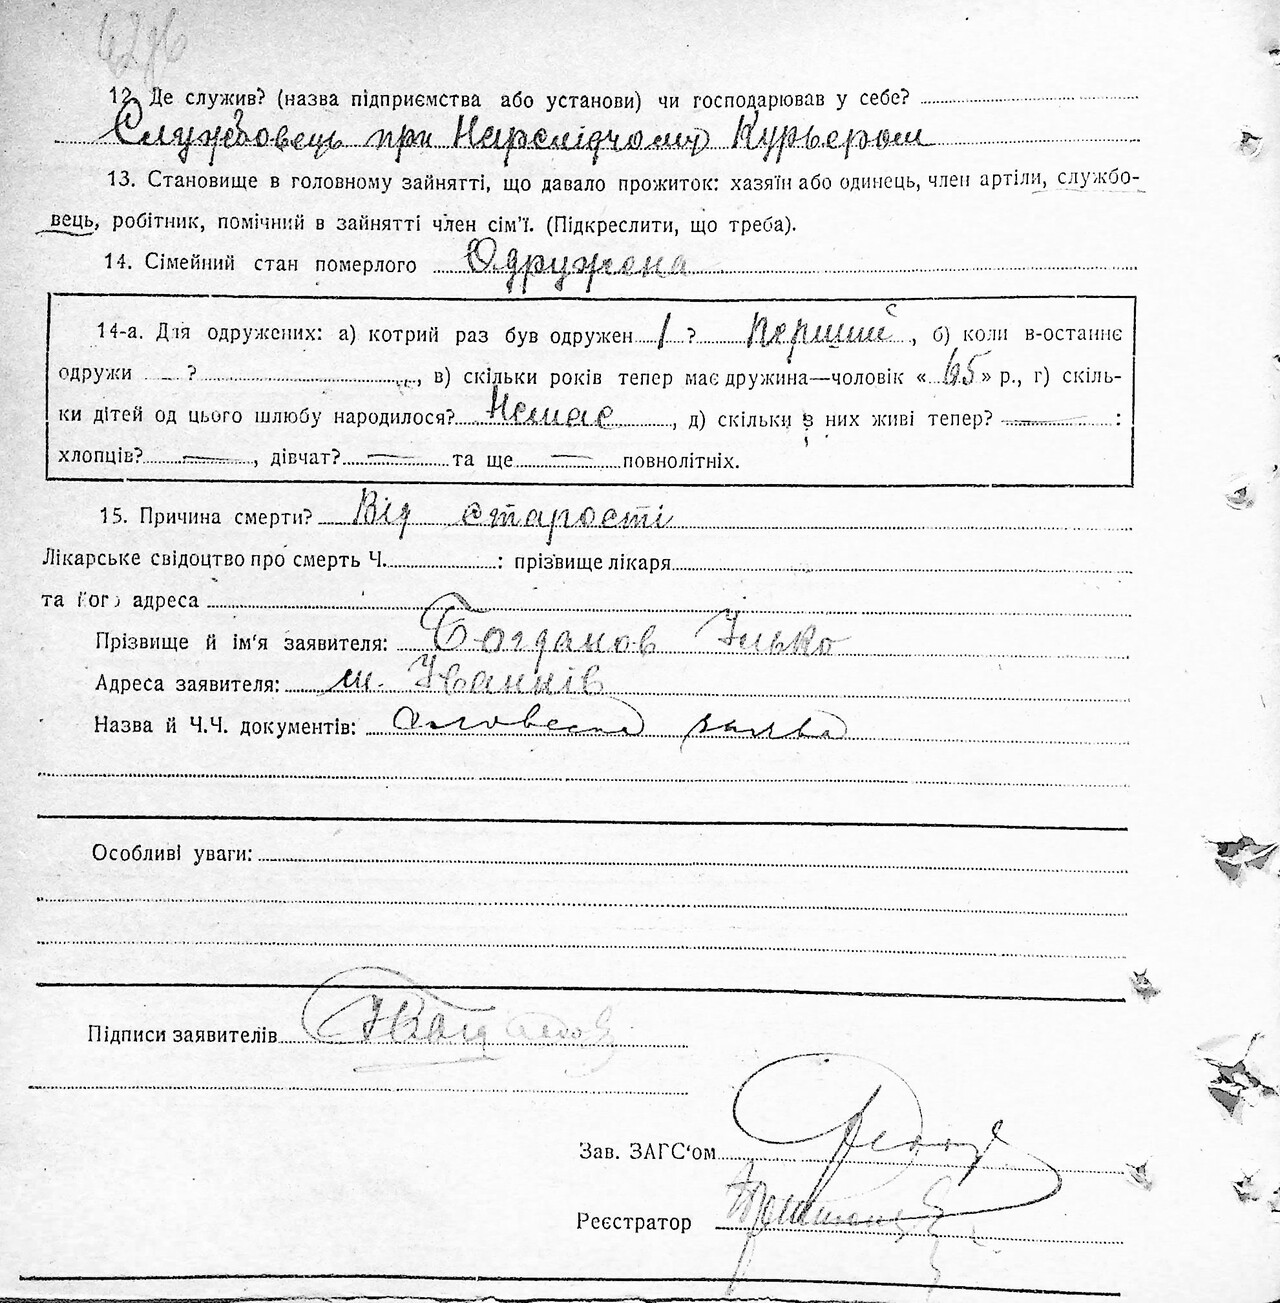 12. Де служив? (назва підприємства або установи) чи господарював у себе?
Службовець при Нарслідчому Курьером
13. Становище в головному зайнятті, що давало прожиток: хазяїн або одинець, член артіли, службо-
вець, робітник, помічний в зайнятті член сім'ї. (Підкреслити, що треба).
14. Сімейний стан померлого Одружена
14-а. Для одружених: а) котрий раз був одружен 1 ? Перший, б) коли в-останнє
одружи ?, в) скільки років тепер має дружина—чоловік «65» р., г) скіль-
ки дітей од цього шлюбу народилося? Немає, д) скільки з них живі тепер? — :
хлопців? —, дівчат? — та ще — повнолітніх.
15. Причина смерти? Від старості
Лікарське свідоцтво про смерть Ч. : прізвище лікаря
та його адреса
Прізвище й ім'я заявителя: Богданов Ілько
Адреса заявителя: м. Іванків
Назва й Ч.Ч. документів: словесна заява
Особливі уваги:
Підписи заявителів
Зав. ЗАГС'ом
Реєстратор